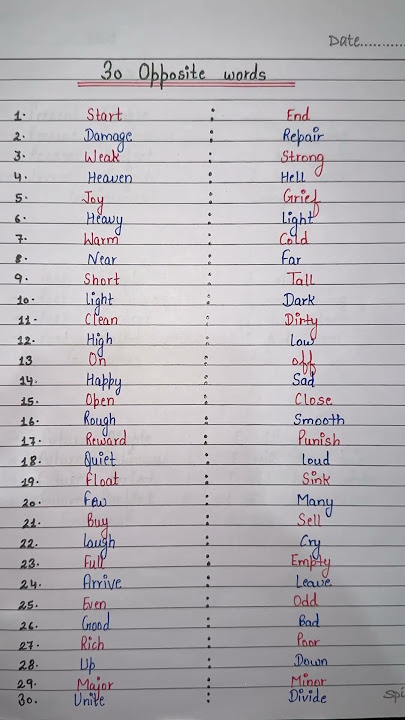 Date............
30 Opposite words
1. Start : End
2. Damage : Repair
3. Weak : Strong
4. Heaven : Hell
5. Joy : Grief
6. Heavy : Light
7. Warm : Cold
8. Near : Far
9. Short : Tall
10. Light : Dark
11. Clean : Dirty
12. High : Low
13 On : off
14. Happy : Sad
15. Open : Close
16. Rough : Smooth
17. Reward : Punish
18. Quiet : loud
19. Float : Sink
20. Few : Many
21. Buy : Sell
22. laugh : Cry
23. Full : Empty
24. Arrive : Leave
25. Even : Odd
26. Good : Bad
27. Rich : Poor
28. Up : Down
29. Major : Minor
30. Unite : Divide